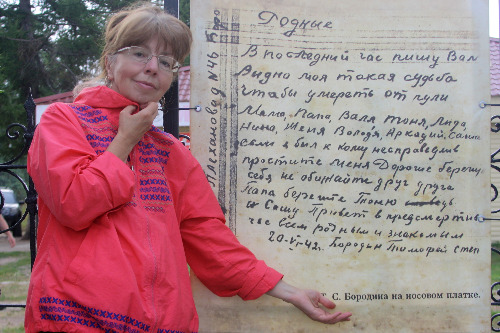 Родные
В последний час пишу Вам
Видно моя такая судьба
чтобы умереть от пули
Мама, Папа, Валя Тоня, Лида
Нина, Женя Володя, Аркадий, Саша
если я был к кому несправедлив
простите меня Дорогие береги
себя не обижайте друг друга
Папа берегите Тоню
и Сашу Привет в предсмертны
час всем родным и знакомым
20-VI-42. Бородин Тимофей Степ
С. Бородина на носовом платке.